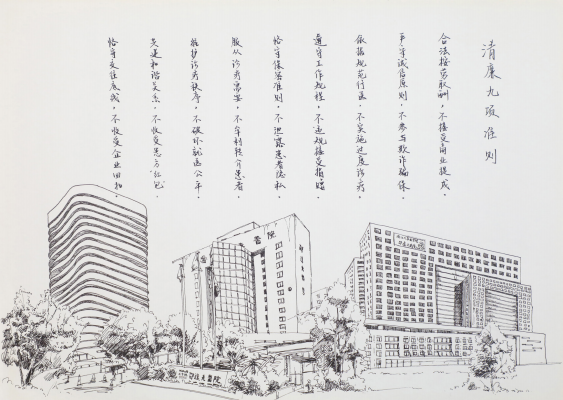 清廉九项准则
合法按劳取酬，不接受商业提成。
严守诚信原则，不参与欺诈骗保。
依据规范行医，不实施过度诊疗。
遵守工作规程，不违规接受捐赠。
恪守保密准则，不泄露患者隐私。
服从诊疗需要，不牟利转介患者。
维护诊疗秩序，不破坏就医公平。
共建和谐关系，不收受患方“红包”。
恪守交往底线，不收受企业回扣。
醫院